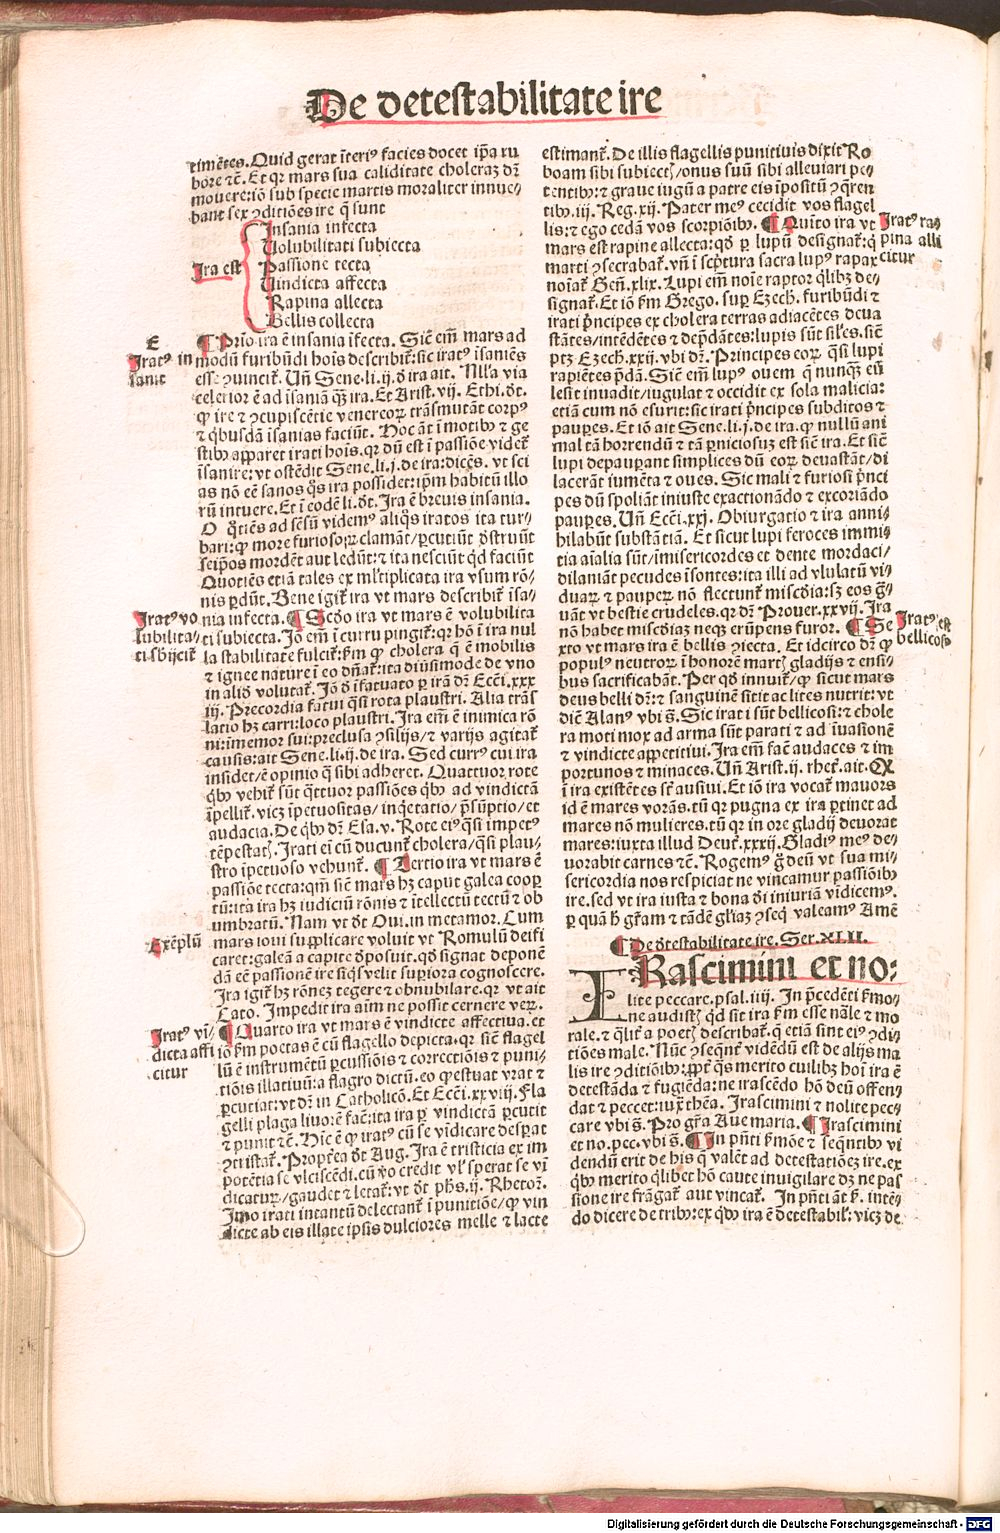 De detestabilitate ire
timētes. Quid gerat īteriꝰ facies docet ip̄a ru
bore ⁊c̄. Et qꝛ mars sua caliditate choleraʒ dʒ
mouere: iō sub specie martis moraliter innue⸗
bant sex ꝯditiōes ire q̄ sunt
Insania infecta
Uolubilitati subiecta
Ira est
Passione tecta
Uindicta affecta
Rapina allecta
Bellis collecta
E
Iratꝰ in
sanit
¶ Prīo ira ē insania īfecta. Sic̄ em̄ mars ad
modū furibūdi hoīs describit̄: sic iratꝰ īsaniēs
esse ꝯuincit̄. Un̄ Sene. li. ij. ꝺ ira ait. Nll'a via
celerior ē ad īsaniā q̄ʒ ira. Et Arist. vij. Ethi. ꝺt.
ꝙ ire ⁊ ꝯcupiscētie venereoꝝ trāsmutāt corpꝰ
⁊ q̇busdā īsanias faciūt. Hoc āt ī motibꝰ ⁊ ge
stibꝰ apparet irati hoīs. qꝛ dū est ī passiōe videt̄
īsanire: vt ostēdit Sene. li. j. de ira: dicēs. vt sci
as nō eē sanos q̊s ira possidet: ip̄m habitū illo
rū intuere. Et ī eodē li. ꝺt. Ira ē breuis insania.
O q̊tiēs ad sēsū videmꝰ aliq̊s iratos ita tur⸗
bari: ꝙ more furiosoꝝ clamāt/ ꝑcutiūt ꝺstruūt
seip̄os mordēt aut ledūt: ⁊ ita nesciūt qd̄ faciūt
Quotiēs etiā tales ex ml'tiplicata ira vsum rō⸗
nis ꝑdūt. Bene igit̄ ira vt mars describit̄ īsa⸗
Iratꝰ vo
lubilita⸗
ti sbijcit̄
nia infecta. ¶ Scd̄o ira vt mars ē volubilita
ti subiecta. Jō em̄ ī curru pingit̄: qꝛ hō ī ira nul
la stabilitate fulcit̄: ẜm ꝙ cholera q̄ ē mobilis
⁊ ignee nature ī eo dn̄at̄: ita diūsimode de vno
in aliō volutat̄. Jō ꝺ īfatuato ꝑ irā dʒ Ecc̄i. xxx
iij. Precordia fatui q̄si rota plaustri. Alia trās
latio hʒ carri: loco plaustri. Ira em̄ ē inimica rō
ni: īmemor sui: preclusa ꝯsilijs/ ⁊ varijs agitat̄
causis: ait Sene. li. ij. de ira. Sed currꝰ cui ira
insidet/ ē opinio q̄ sibi adheret. Quattuor rote
q̇bꝰ vehit̄ sūt q̄ttuor passiōes q̇bꝰ ad vindictā
īpellit̄. vicʒ īpetuositas/ inq̇etatio/ p̄sūptio/ et
audacia. De q̇bꝰ dʒ Esa. v. Rote eiꝰ q̄si impetꝰ
tēpestatꝭ. Irati ei cū ducunt̄ cholera/ q̄si plau⸗
stro īpetuoso vehunt̄. ¶ Tertio ira vt mars ē
passiōe tecta: qm̄ sic̄ mars hʒ caput galea cooꝑ
tū: ita ira hʒ iudiciū rōnis ⁊ ītellectū tectū ⁊ ob
umbratū. Nam vt ꝺt Oui. in metamor. Cum
Exēplū
mars ioui supplicare voluit vt Romulū deifi
caret: galeā a capite ꝺposuit. qd̄ signat deponē
dā eē passionē ire siq̇s velit supiora cognoscere.
Ira igit̄ hʒ rōneʒ tegere ⁊ obnubilare. qꝛ vt ait
Cato. Impedit ira aīm ne possit cernere veꝝ.
Iratꝰ vī⸗
dicta affi
citur
¶ Quarto ira vt mars ē vindicte affectiua. et
iō ẜm poetas ē cū flagello depicta. qꝛ sic̄ flagel
lū ē instrumētū ꝑcussiōis ⁊ correctiōis ⁊ puni⸗
tiōis illatiuū: a flagro dictū. eo ꝙ estuat vrat ⁊
ꝑcutiat: vt dʒ in Catholicō. Et Ecc̄i. xxviij. Fla
gelli plaga liuorē fac̄: ita ira ꝑ vindictā ꝑcutit
⁊ punit ⁊c̄. Hic ē ꝙ iratꝰ cū se vīdicare desꝑat
ꝯtristat̄. Propt̄ea ꝺt Aug. Ira ē tristicia ex im
potētia se vlciscēdi. cū v̊o credit vl' sperat se vī
dicatuꝝ/ gaudet ⁊ letat̄: vt ꝺt ph̄s. ij. Rhetoꝝ.
Imo irati intantū delectant̄ ī punitiōe/ ꝙ vin
dicte ab eis illate ipsis dulciores melle ⁊ lacte
estimant̄. De illis flagellis punitiuis dixit Ro
boam sibi subiectꝭ/ onus suū sibi alleuiari pe⸗
tentibꝰ: ⁊ graue iugū a patre eis īpositū ꝯq̄ren
tibꝰ. iij. Reg. xij. Pater meꝰ cecidit vos flagel
lis: ⁊ ego cedā vos scorpiōibꝰ. ¶ Quīto ira vt
Iratꝰ ra⸗
pina alli
citur
mars est rapine allecta: qd̄ ꝑ lupū designat̄: q̇
marti ꝯsecrabat̄. vn̄ ī sc̄ptura sacra lupꝰ rapax
noīat̄ Gen̄. xlix. Lupi em̄ noīe raptor q̇libʒ de⸗
signat̄. Et iō ẜm Grego. suꝑ Ezech. furibūdi ⁊
irati p̄ncipes ex cholera terras adiacētes deua
stātes/ intēdētes ⁊ dep̄dātes: lupis sūt sil'es. sic̄
ptʒ Ezech. xxij. vbi dʒ. Principes eoꝝ q̄si lupi
rapiētes p̄dā. Sic̄ em̄ lupꝰ ouem q̄ nunq̄ʒ eū
lesit inuadit/ iugulat ⁊ occidit ex sola malicia:
etiā cum nō esurit: sic irati p̄ncipes subditos ⁊
pauꝑes. Et iō ait Sene. li. j. de ira. ꝙ nullū ani
mal tā horrendū ⁊ tā ꝑniciosuʒ est sic̄ ira. Et sic̄
lupi depauꝑant simplices dū eoꝝ deuastāt/ di
lacerāt iumēta ⁊ oues. Sic mali ⁊ furiosi p̄nci
pes dū spoliāt iniuste exactionādo ⁊ excoriādo
pauꝑes. Un̄ Ecc̄i. xxj. Obiurgatio ⁊ ira anni⸗
hilabūt substātiā. Et sicut lupi feroces immi⸗
tia aīalia sūt/ īmisericordes et dente mordaci/
dilaniāt pecudes īsontes: ita illi ad vlulatū vi⸗
duaꝝ ⁊ pauꝑeꝝ nō flectunt̄ mīscd̄ia: sʒ eos g̊⸗
uāt vt bestie crudeles. qꝛ dʒ Prouer. xxvij. Ira
nō habet mīscd̄iaʒ neqʒ erūpens furor. ¶ Se
Iratꝰ est
bellicosꝰ
xto vt mars ira ē bellis ꝯiecta. Et idcirco dʒ ꝙ
populꝰ neutroꝝ ī honorē martꝭ gladijs ⁊ ensi⸗
bus sacrificabāt. Per qd̄ innuit̄/ ꝙ sicut mars
deus belli dʒ: ⁊ sanguinē sitit ac lites nutrit: vt
dic̄ Alanꝰ vbi s̄. Sic irati sūt bellicosi: ⁊ chole
ra moti mox ad arma sūt parati ⁊ ad īuasionē
⁊ vindicte appetitiui. Ira em̄ fac̄ audaces ⁊ im
portunos ⁊ minaces. Un̄ Arist. ij. rhet̄. ait. Qꝛ
ī ira existētes st̄ ausiui. Et iō ira vocat̄ mauors
id ē mares vorās. tū qꝛ pugna ex ira ꝑtinet ad
mares nō mulieres. tū qꝛ in ore gladij deuorat
mares: iuxta illud Deut̄. xxxij. Gladiꝰ meꝰ de⸗
uorabit carnes ⁊c̄. Rogemꝰ g̊ deū vt sua mi⸗
sericordia nos respiciat ne vincamur passiōibꝰ
ire. sed vt ira iusta ⁊ bona ꝺi iniuriā vīdicemꝰ.
ꝑ quā hic gr̄am ⁊ tādē gl'iaʒ ꝯseq̇ valeamꝰ Amē
¶ De ꝺtestabilitate ire. Ser. XLII.
IRascimini et no⸗
lite peccare. psal. iiij. In p̄cedēti ẜmo⸗
ne audistꝭ qd̄ sit ira ẜm esse nāle ⁊ mo
rale. ⁊ q̄lit̄ a poetꝭ describat̄. q̄ etiā sint eiꝰ ꝯdi⸗
tiōes male. Nūc ꝯseq̄nt̄ vidēdū est de alijs ma
lis ire ꝯditiōibꝰ: ꝓpt̄ q̄s merito cuilibʒ hoī ira ē
detestāda ⁊ fugiēda: ne irascēdo hō deū offen⸗
dat ⁊ peccet: iux̄ thēa. Irascimini ⁊ nolite pec⸗
care vbi s̄. Pro gr̄a Aue maria. ¶ Irascimini
et no. pec. vbi s̄. ¶ In p̄nti ẜmōe ⁊ seq̄ntibꝰ vi
dendū erit de his q̄ valēt ad detestatiōeʒ ire. ex
q̇bꝰ merito q̇libet hō caute inuigilare dʒ ne pas
sione ire frāgat̄ aut vincat̄. In p̄nti āt ẜ. intē⸗
do dicere de tribꝰ: ex q̇bꝰ ira ē detestabil': vicʒ de
Digitalisierung gefördert durch die Deutsche Forschungsgemeinschaft - DFG